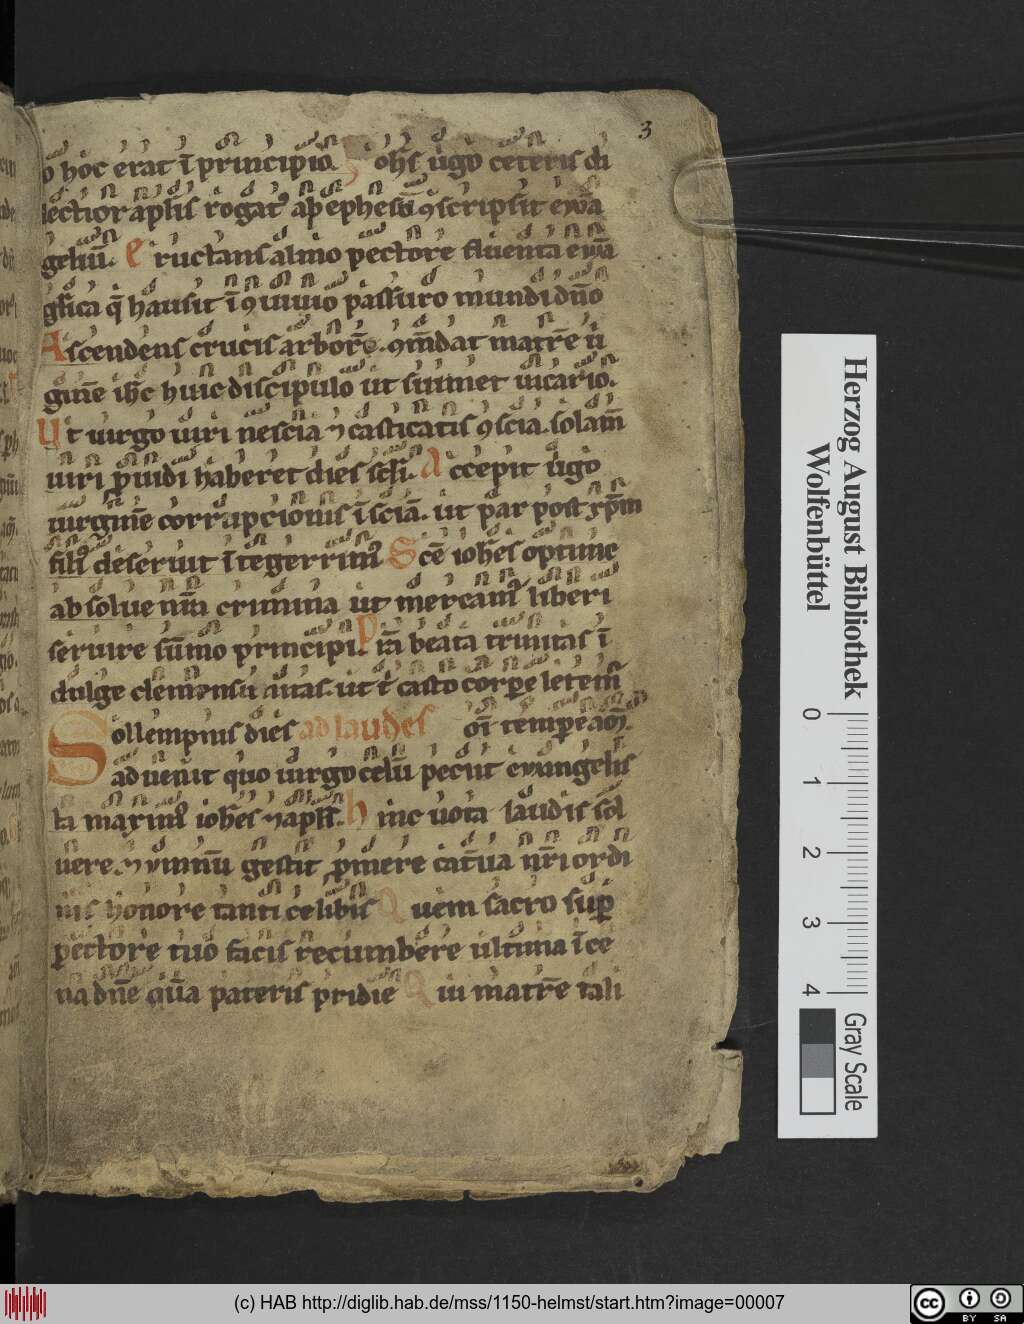 3
o hoc erat ī principio. Iohs ůgo ceteris di
lectior aplis rogat᷒ ap̄ ephesū ꝯscripsit ewa
geliū. eructans almo pectore fluenta ewā
glica q̄ hausit ī ꝯuiuio passuro mundi dn̄o
Ascendens crucis arborē. ꝯm̄dat matrē ů
ginē ihc huic discipulo ut suimet uicario.
Ut uirgo uiri nescia ⁊ castitatis ꝯscia. solam̄
uiri p̄uidi haberet dies sc̄s. Accepit ůgo
uirginē corrupcionis īsciā. ut par post xp̄m
fili᷒ deseruit ītegerrim᷒ Sc̄e ioh̄es optime
absolue nr̄a crimina ut mercam᷒ liberi
seruire sūmo principi. P̄sta beata trinitas ī
dulge clemens unitas. ut t̄ casto corpe letem᷒
Sollempnis dies ad laudes oī tempe
aduenit quo uirgo celū petiit ewangelis
ta maxim᷒ ioh̄es ⁊ apl̄s. hinc uota laudis sol
uere. ⁊ ymnū gestit p̄mere cat̄ua nr̄i ordi
nis honore tanti celibis Quem sacro sup
pectore tuo facis recumbere ultima ī ce
na dn̄e q̄a pateris pridie Qui matrē tali
Herzog August Bibliothek
Wolfenbüttel
0 1 2 3 4
Gray Scale
(c) HAB http://diglib.hab.de/mss/1150-helmst/start.htm?image=00007
cc BY SA